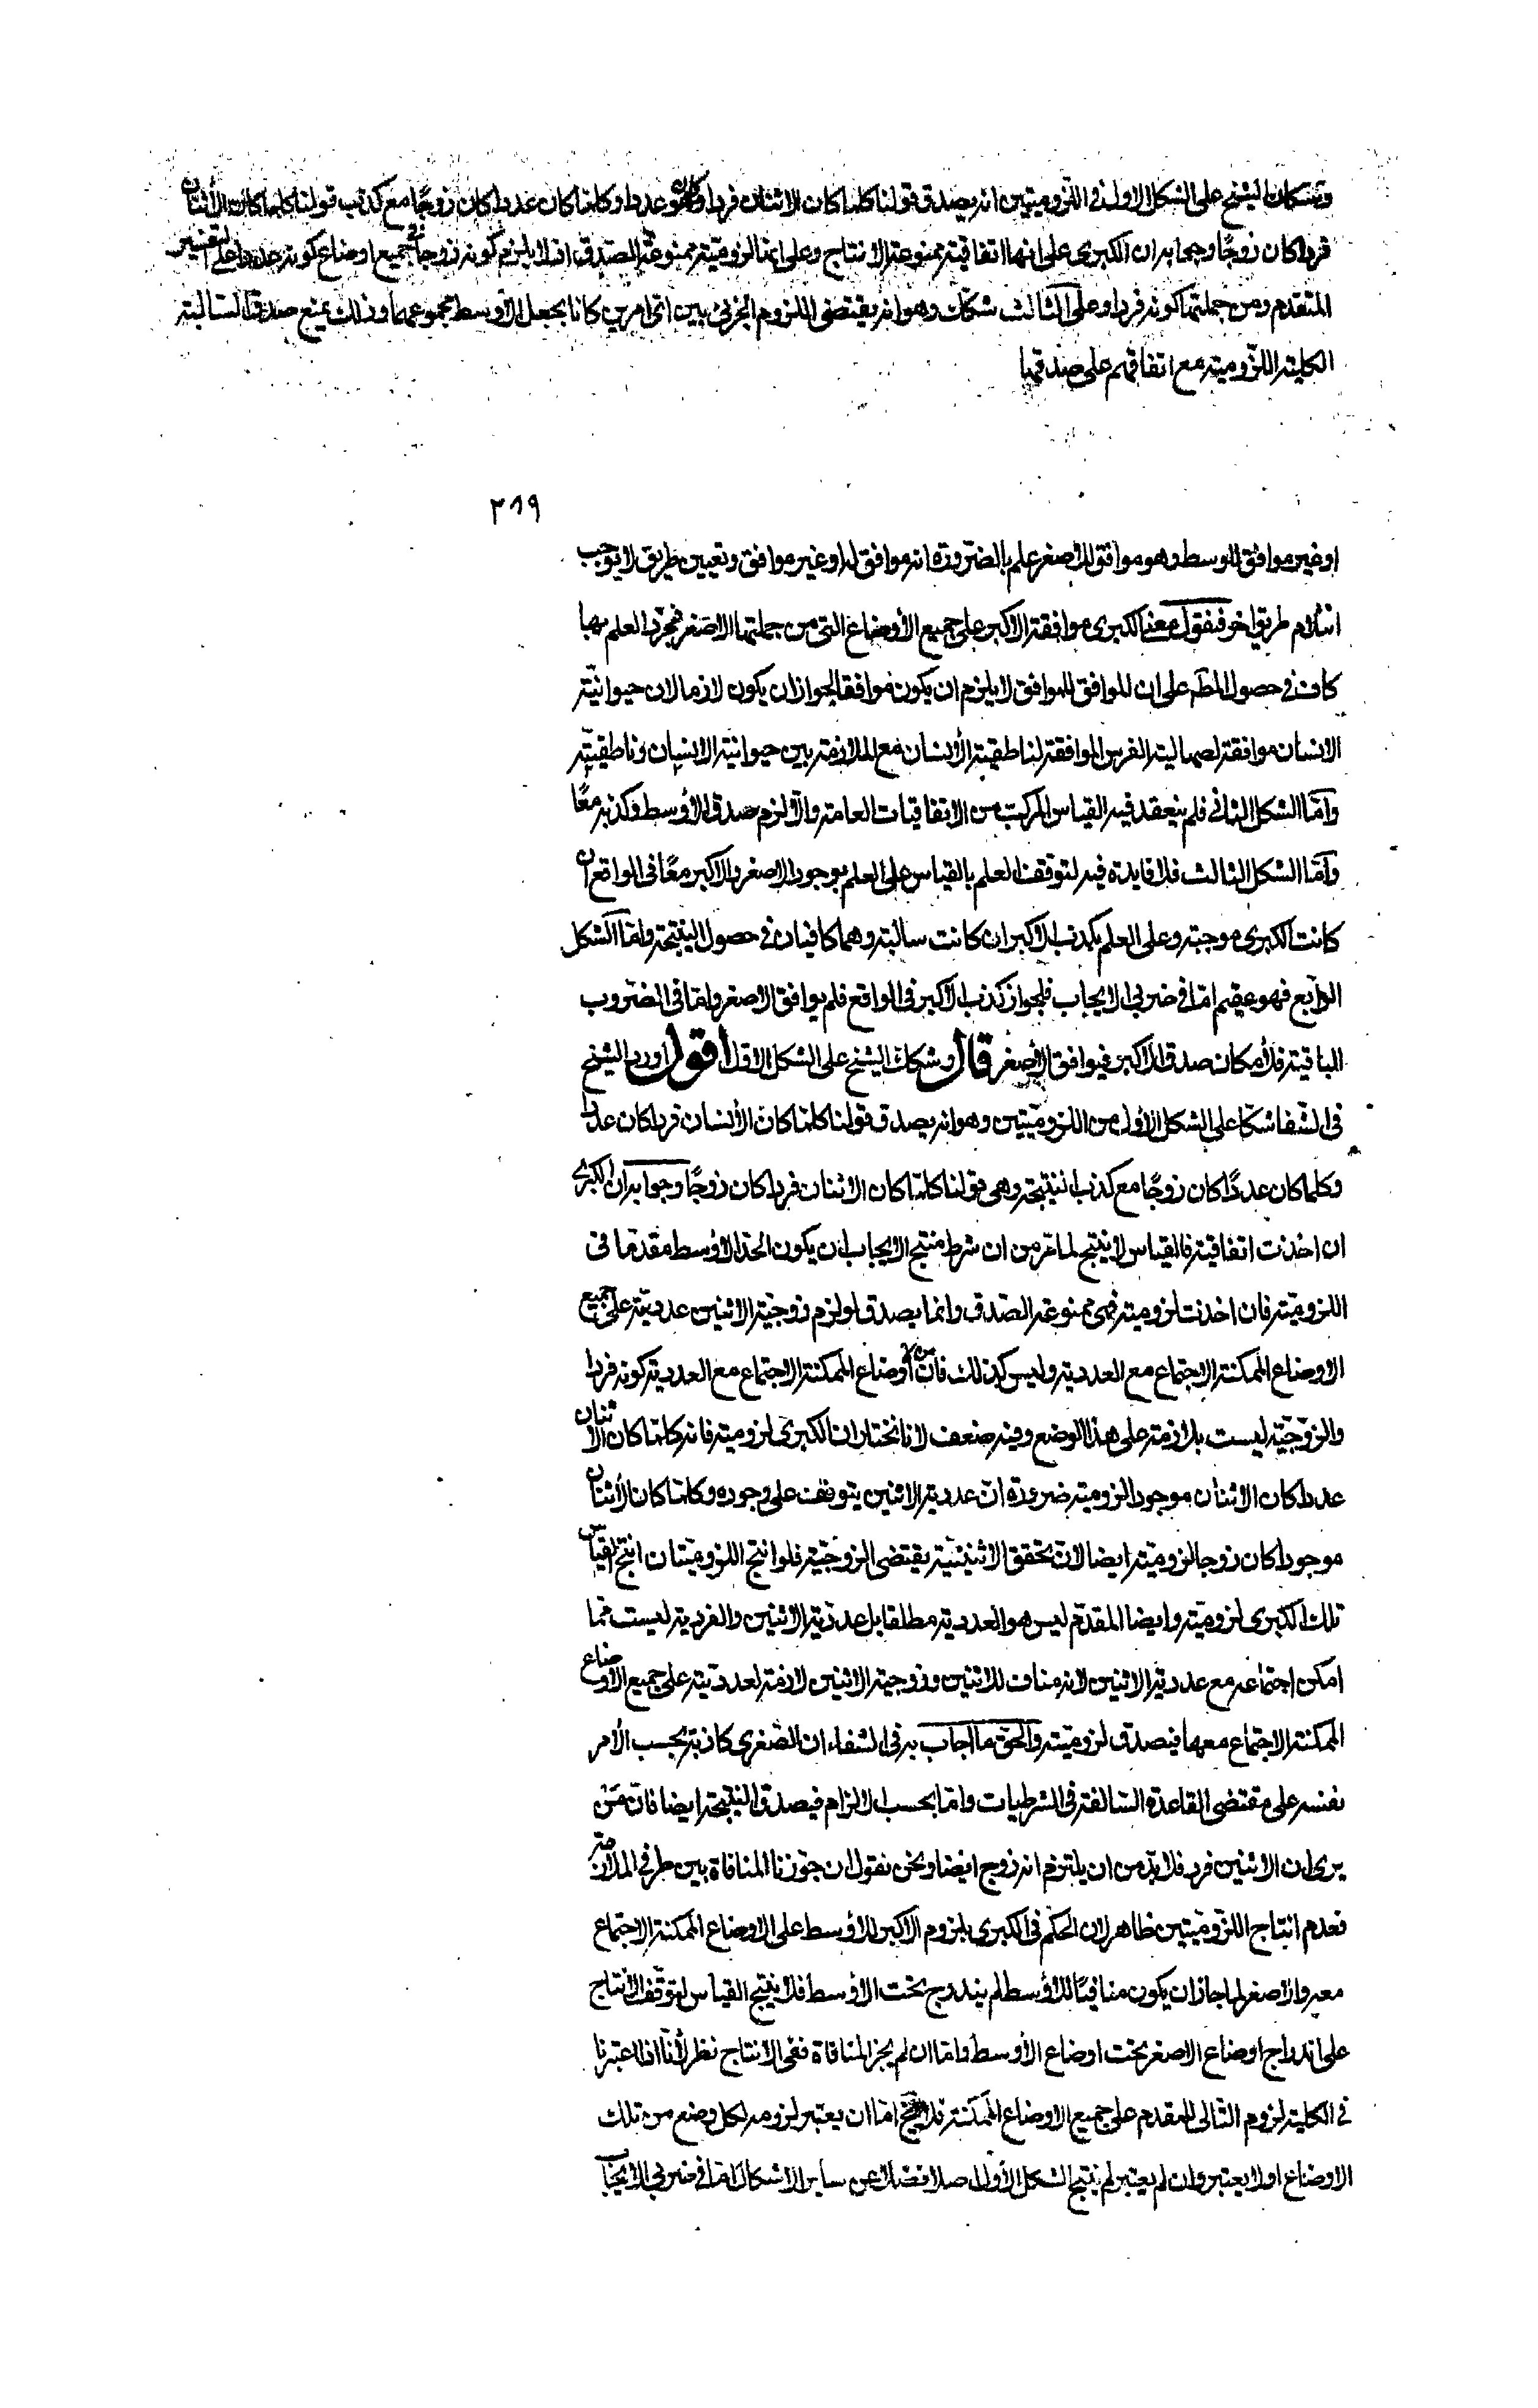 وشكك الشيخ على الشكل الاول في اللزوميتين انه يصدق قولنا كلما كان الاثنان فردا فهو عدد وكلما كان عددا كان زوجًا مع كذب قولنا كلما كان الأثنان
فردا كان زوجًا وجوابه ان الكبرى على انها اتفاقية ممنوعة الانتاج وعلى انها لزومية ممنوعة الصدق اذ لا يلزم كونه زوجًا في جميع اوضاع كونه عددا على التفسير
المتقدم ومن جملتها كونه فردا وعلى الثالث شكك وهو انه يقتضى اللزوم الجزئى بين اىّ امرين كانا بجعل الأوسط مجموعهما وذلك يمنع صدق السالبة
الكلية اللزومية مع اتفاقهم على صدقها
٣١٩
او غير موافق للوسط وهو موافق للأصغر علم بالضرورة انه موافق له او غير موافق وتعيين طريق لا يوجب
انثلام طريق اخر فنقول معنى الكبرى موافقة الاكبر على جميع الأوضاع التى من جملتها الاصغر فمجرّد العلم بها
كاف في حصول المط على ان الموافق للموافق لا يلزم ان يكون موافقا لجواز ان يكون لازما لان حيوانيّة
الانسان موافقة لصهالية الفرس الموافقة لناطقية الأنسان مع الملازمة بين حيوانية الانسان وناطقيّته
وأمّا الشكل الثانى فلم ينعقد فيه القياس المركب من الاتفاقيات العامة والّا لزم صدق الأوسط وكذبه معًا
وأمّا الشكل الثالث فلا فايدة فيه لتوقف العلم بالقياس على العلم بوجود الاصغر والاكبر معًا في الواقع ان
كانت الكبرى موجبة وعلى العلم بكذب الأكبر ان كانت سالبة وهما كافيان في حصول النتيجة وامّا الشكل
الرابع فهو عقيم امّا في ضربى الايجاب فلجواز كذب الأكبر في الواقع فلم يوافق الاصغر وامّا في الضروب
الباقية فلأمكان صدق الاكبر فيوافق الأصغر قال وشكك الشيخ على الشكل الاوّل اقول اورد الشيخ
في الشفا شكّا على الشكل الأول من اللزوميّتين وهو انه يصدق قولنا كلما كان الأنسان فردا كان عددا
وكلما كان عددًا كان زوجًا مع كذب النتيجة وهى قولنا كلّما كان الاثنان فردا كان زوجًا وجوابه ان الكبرى
ان اخذت اتفاقية فالقياس لا ينتج لما مرّ من ان شرط منتج الايجاب ان يكون الحدّ الأوسط مقدما في
اللزوميّة فان اخذت لزومية فهى ممنوعة الصّدق وانما يصدق لو لزم زوجيّة الاثنين عدديّته على جميع
الاوضاع الممكنة الاجتماع مع العددية وليس كذلك فان من الأوضاع الممكنة الاجتماع مع العددية كونه فردا
والزوجيّة ليست بلازمة على هذا الوضع وفيه ضعف لانا نختار ان الكبرى لزومية فانه كلّما كان الاثنان
عددا كان الاثنان موجودا لزومية ضرورة انّ عددية الاثنين يتوقف على وجوده وكلّما كان الأثنان
موجودا كان زوجا لزوميّة ايضا لانّ تحقق الاثنينيّة يقتضى الزوجيّة فلو انتج اللزوميّتان انتج القياس
تلك الكبرى لزوميّة وايضا المقدّم ليس هو العددية مطلقا بل عدديّة الاثنين والفردية ليست مّما
امكن اجتماعه مع عدديّة الاثنين لانه مناف للاثنين وزوجية الاثنين لازمة لعدديّته على جميع الاوضاع
الممكنة الاجتماع معها فيصدق لزوميّة والحق ما اجاب به في الشفاء ان الصّغرى كاذبة بحسب الأمر
نفسه على مقتضى القاعدة السّالفة في الشرطيات وامّا بحسب الالزام فيصدق النتيجة ايضا فانّ مَن
يرى ان الاثنين فرد فلا بدّ من ان يلتزم انه زوج ايضا ونحن نقول ان جوّزنا المنافاة بين طرفى الملازمة
فعدم انتاج اللزّوميّتين ظاهر لان الحكم في الكبرى بلزوم الاكبر للأوسط على الاوضاع الممكنة الاجتماع
معه والاصغر لما جاز ان يكون منافيًا للأوسط لم يندرج تحت الاوسط فلا ينتج القياس لتوقّف الانتاج
على اندراج اوضاع الاصغر تحت اوضاع الأوسط وامّا ان لم يجز المنافاة ففى الانتاج نظر لأنّا اذا اعتبرنا
في الكلية لزوم التّالى للمقدم على جميع الاوضاع الممكنة فلا يخ امّا ان يعتبر لزومه لكل وضع من تلك
الاوضاع او لا يعتبر وان لم يعتبر لم ينتج الشكل الأول اصلا فضلا عن ساير الاشكال امّا في ضربى الايجاب